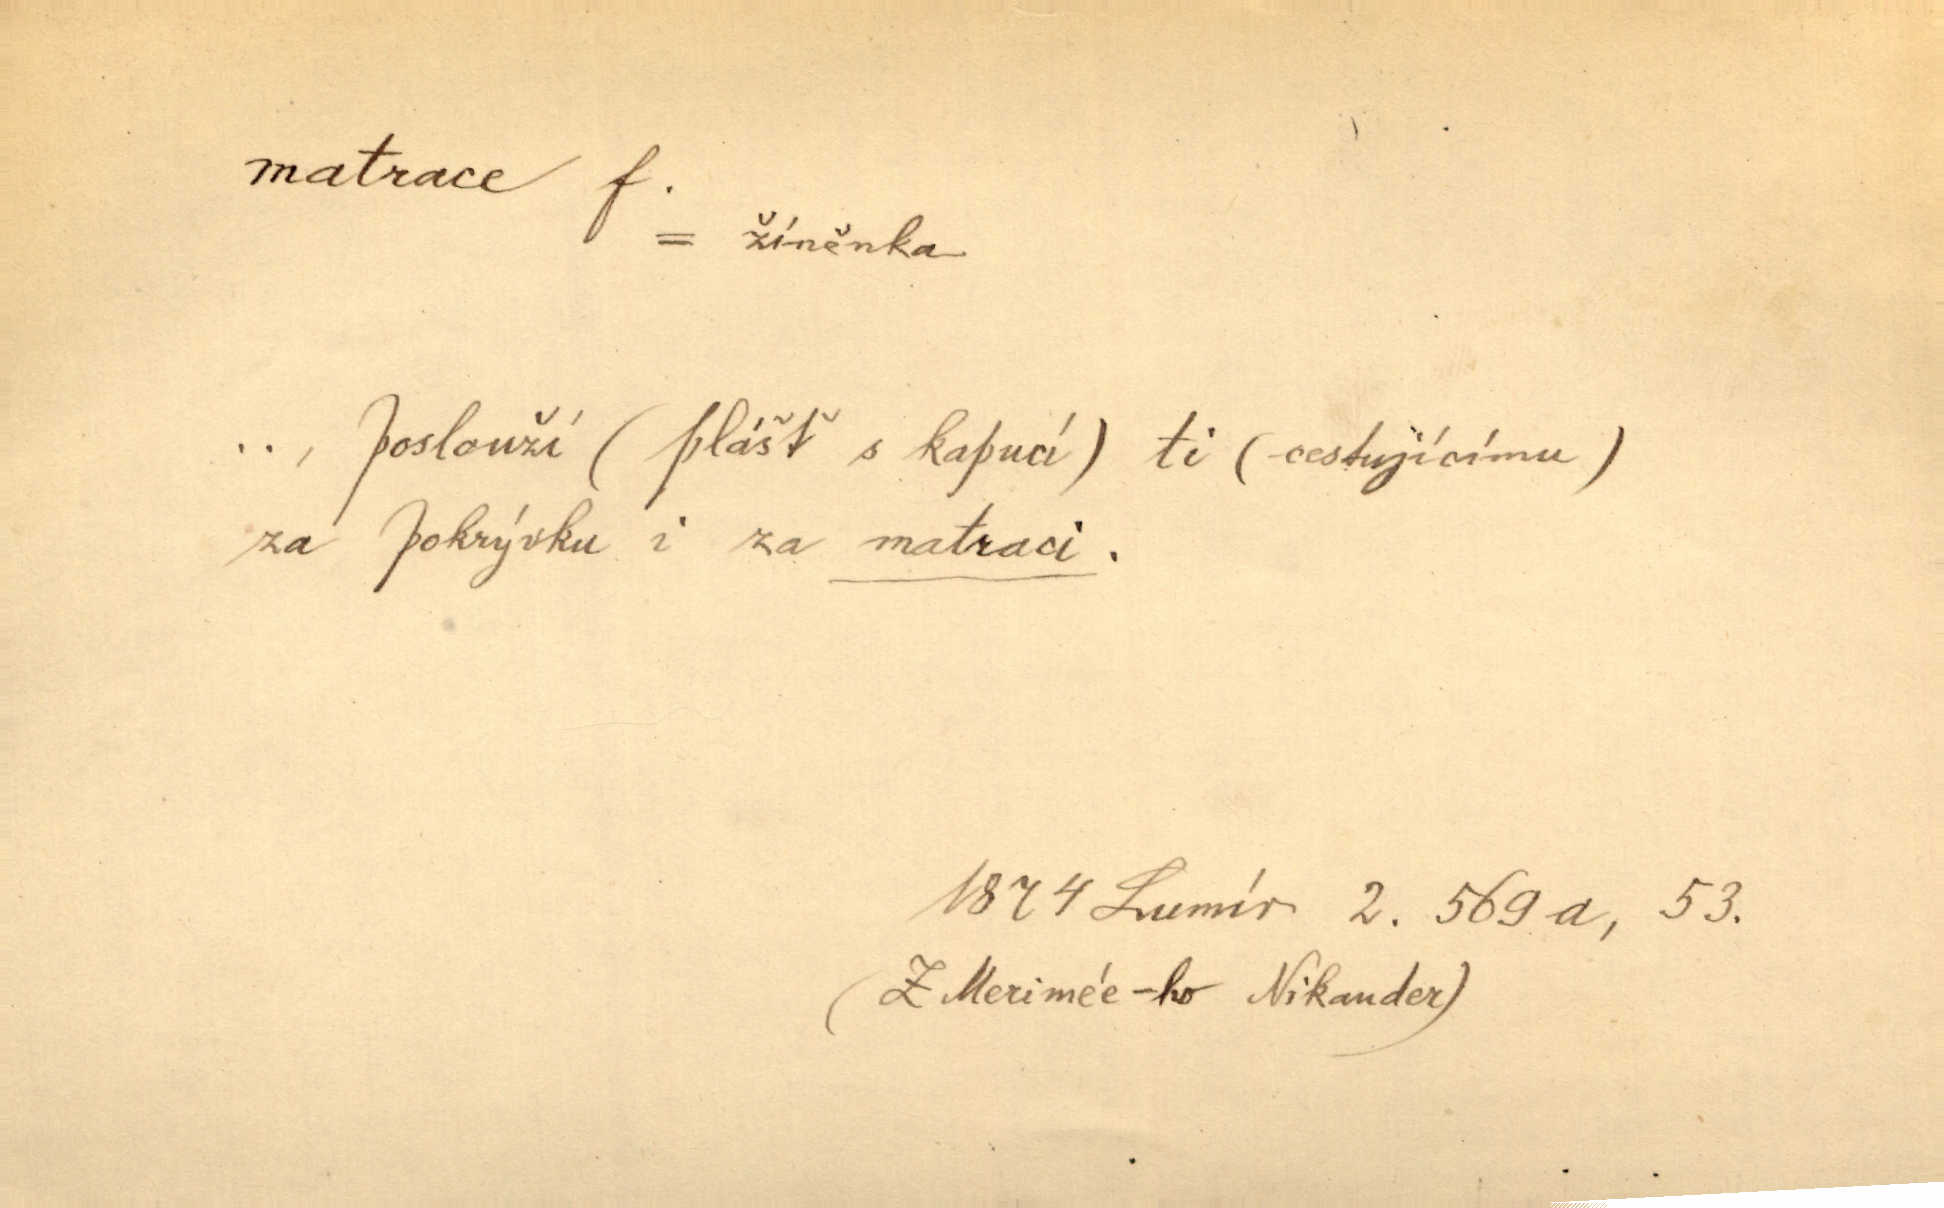 matrace f.
= žíněnka
.., poslouží ( plášť s kapucí) ti ( cestujícímu )
za pokrývku i za matraci.
1874 Lumír 2. 569 a, 53.
( Z Merimée-ho Nikander)